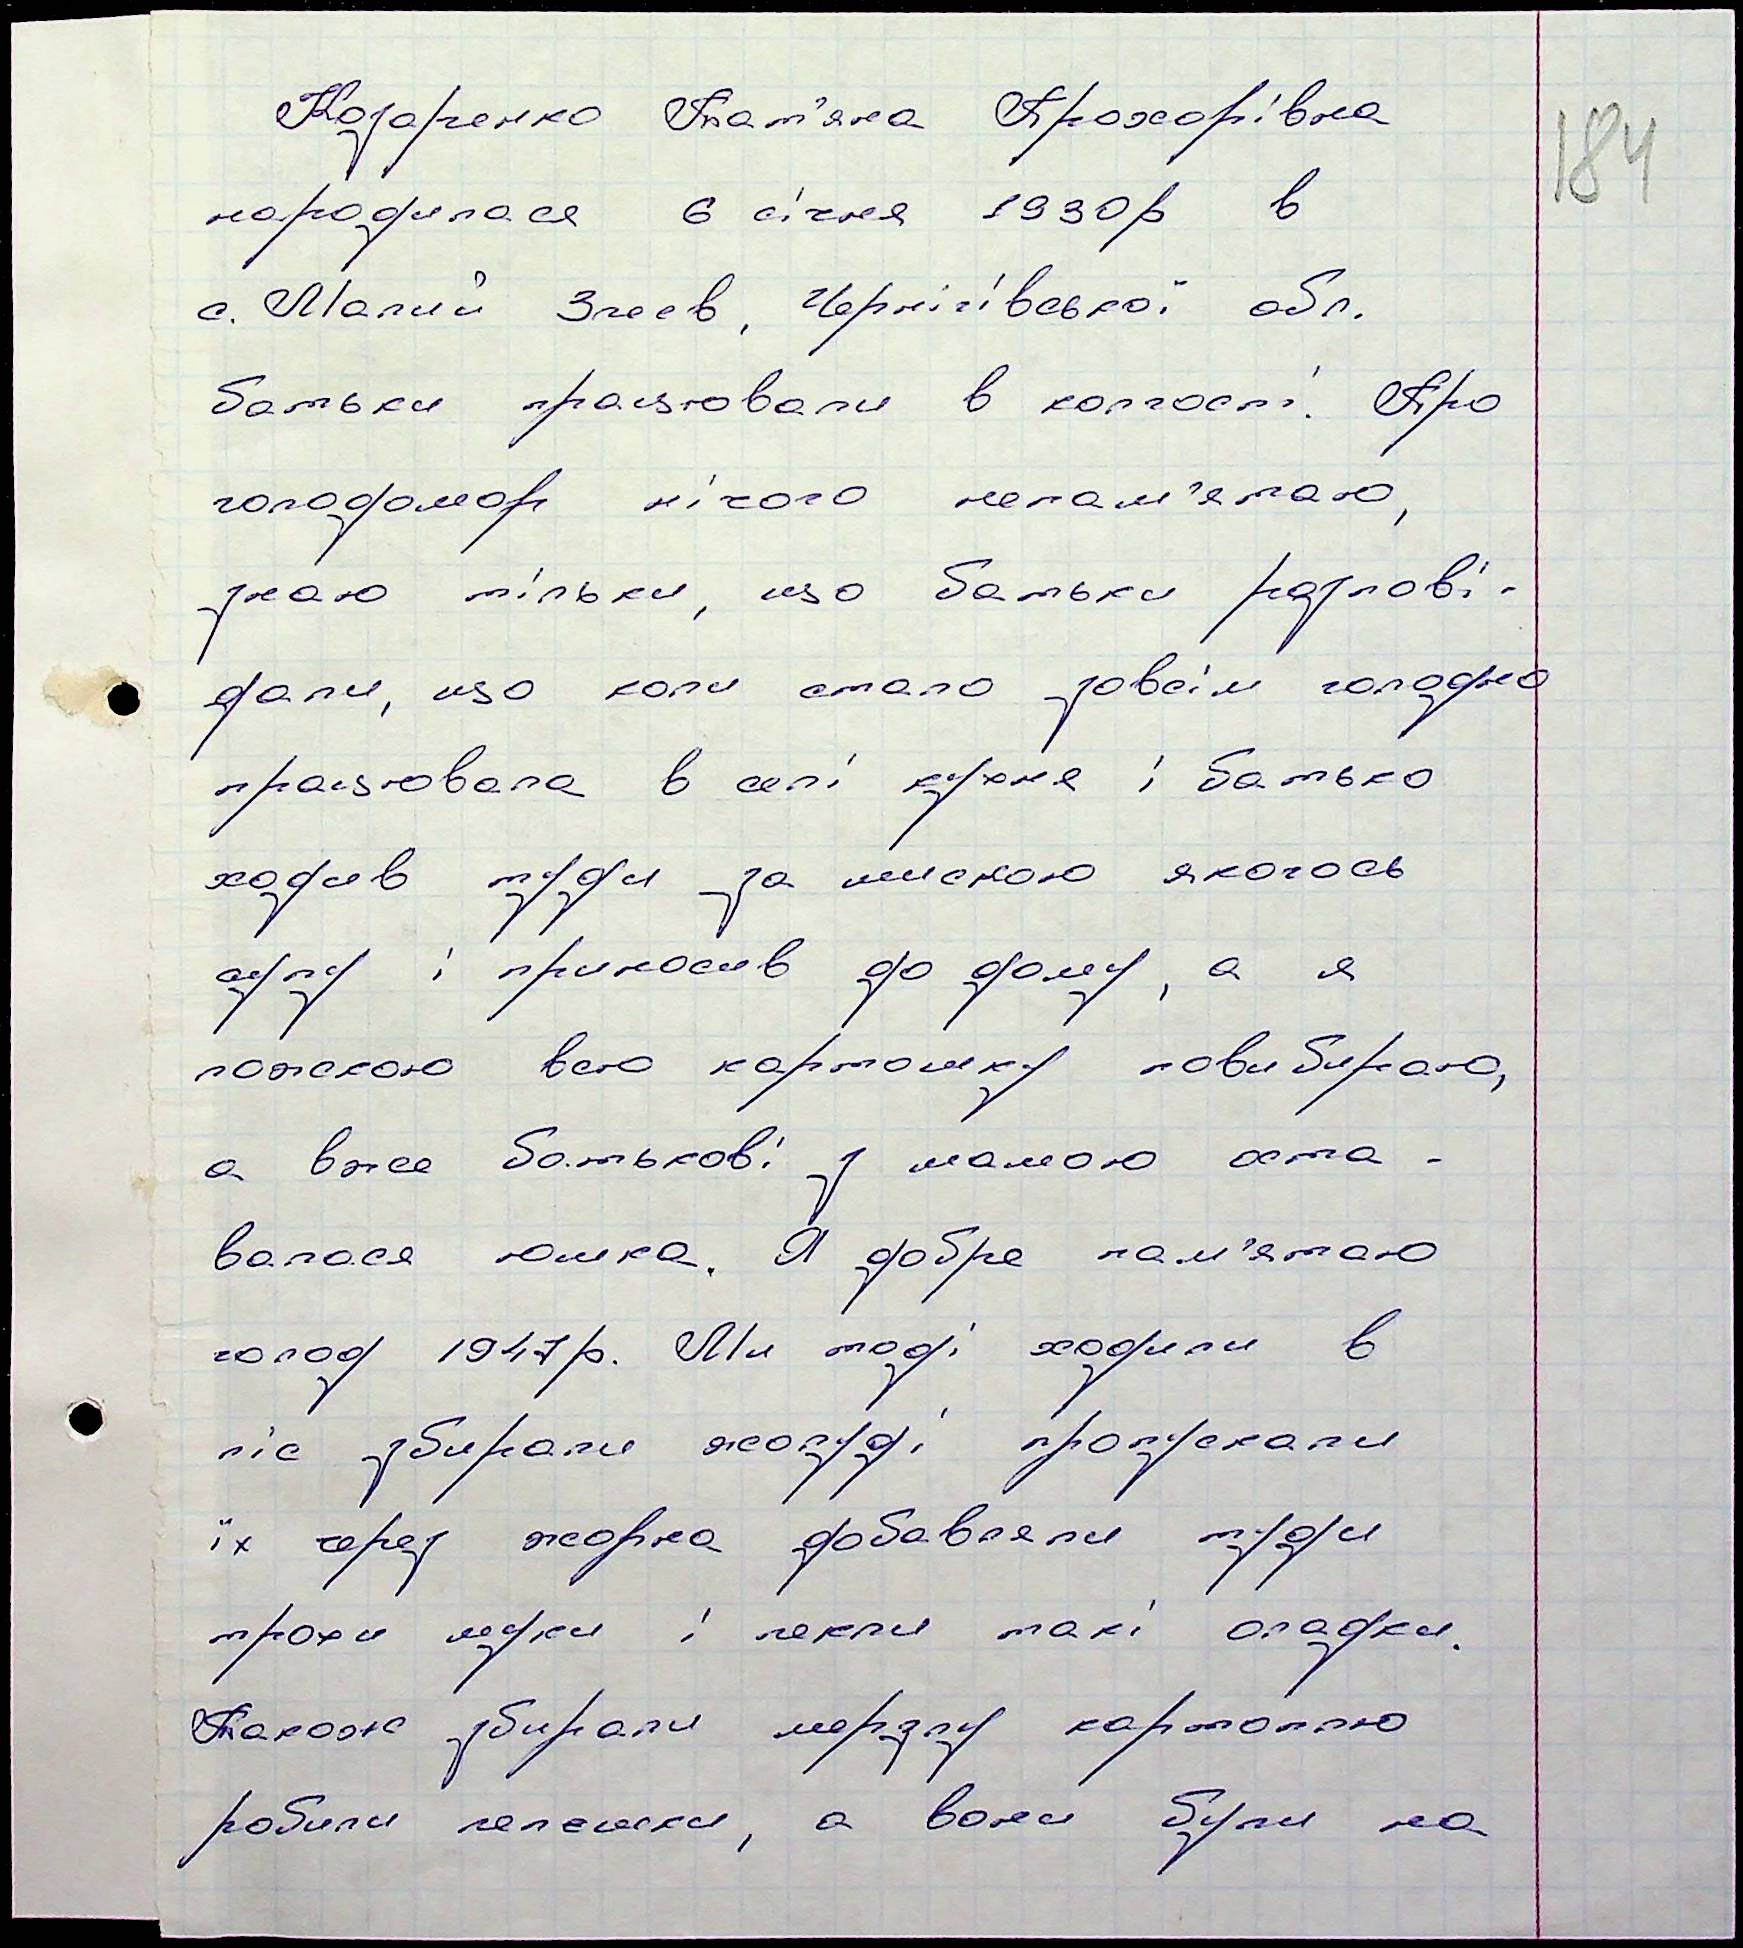 Козаренко Тат'яна Прохорівна
184
народилася 6 січня 1930р в
с. Малий Злеев, Чернігівської обл.
батьки працювали в колгоспі. Про
голодомор нічого непам'ятаю,
знаю тільки, що батьки розпові-
дали, що коли стало зовсім голодно
працювала в селі кухня і батько
ходив туди за мискою якогось
супу і приносив до дому, а я
ложкою всю картошку повибираю,
а вже батькові з мамою оста-
валася юшка. Я добре пам'ятаю
голод 1947р. Ми тоді ходили в
ліс збирали жолуді пропускали
їх через жорна добавляли туди
трохи муки і пекли такі оладки.
Также збирали мерзлу картоплю
робили лепешки, а вони були на